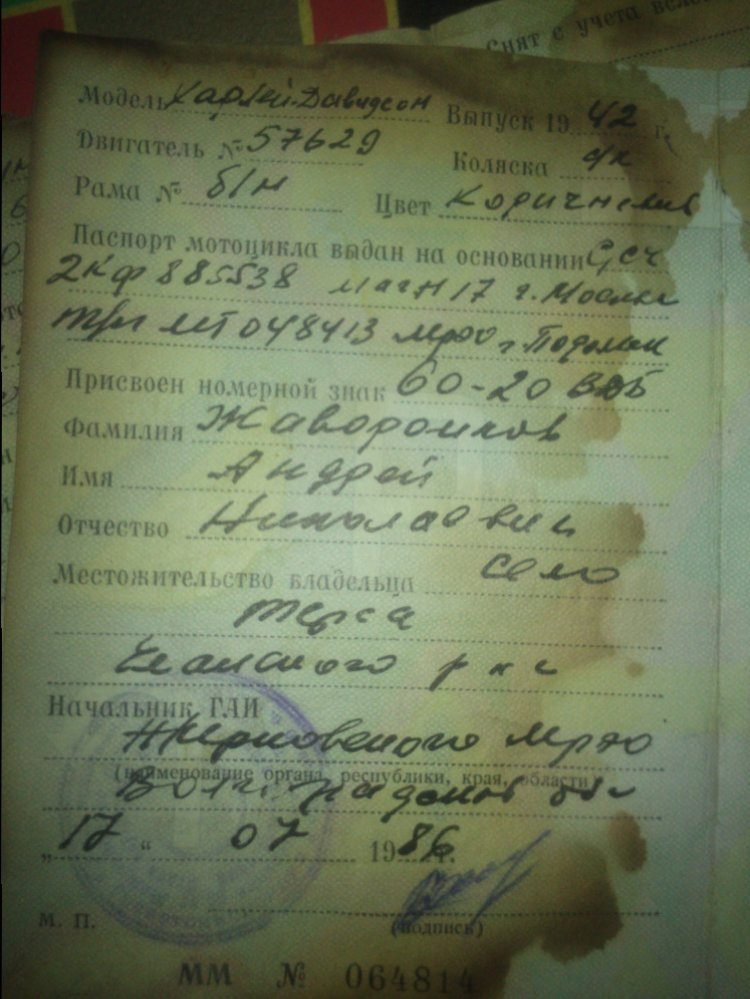 Снят с учета вслед
Модель Харлей-Давидсон Выпуск 1942 г.
Двигатель № 57629 Коляска
Рама № б/н Цвет Коричневый
Паспорт мотоцикла выдан на основании
2КФ 885538 маг N 17 г. Москва
048413 мрэо г. Подольск
Присвоен номерной знак 60-20
Фамилия Жаворонков
Имя Андрей
Отчество Николаевич
Местожительство владельца село
Терса
Еланского р на
Начальник ГАИ
Жирновского мрэо
(наименование органа, республики, края, области)
Волгоградской обл
„17“ 07 1986 г.
М. П. (подпись)
ММ № 064814